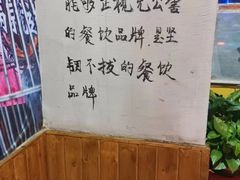 能够正视无公害
的餐饮品牌,是坚
韧不拔的餐饮
品牌